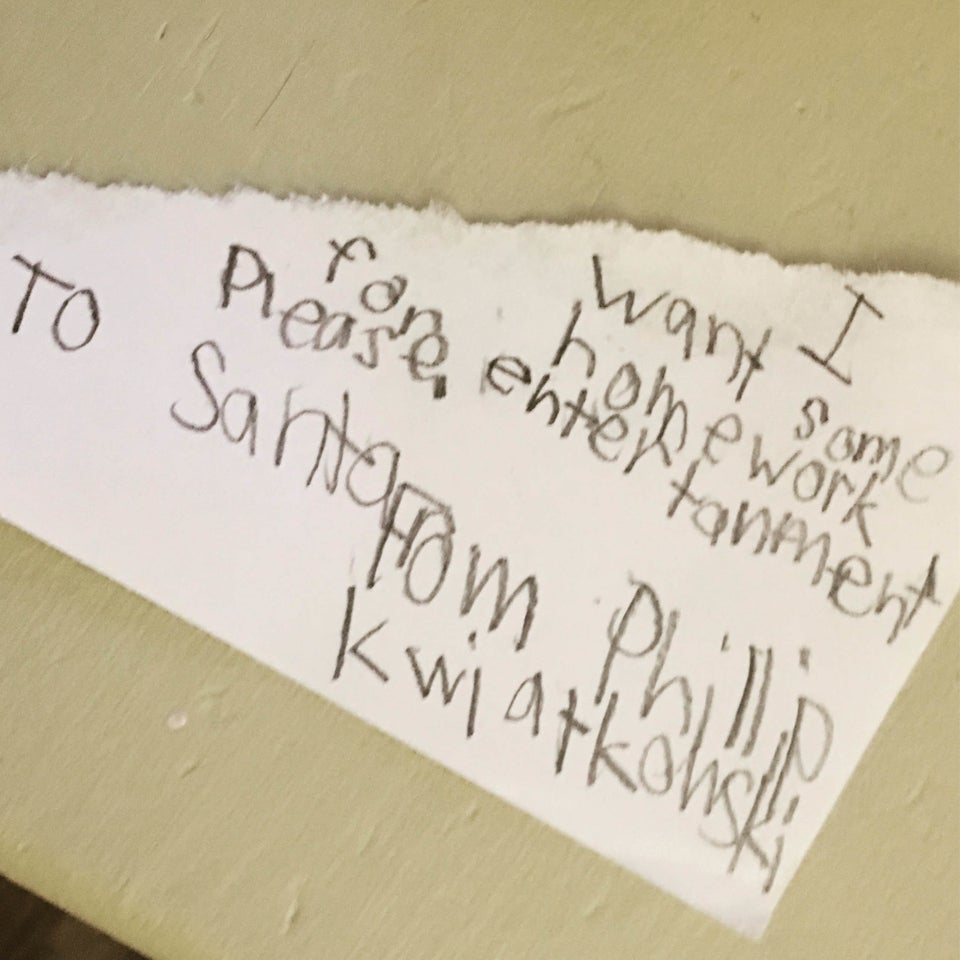 TO Santa
I want some
homework
for entertanment
Please.
from Phillip
kwiatkohski